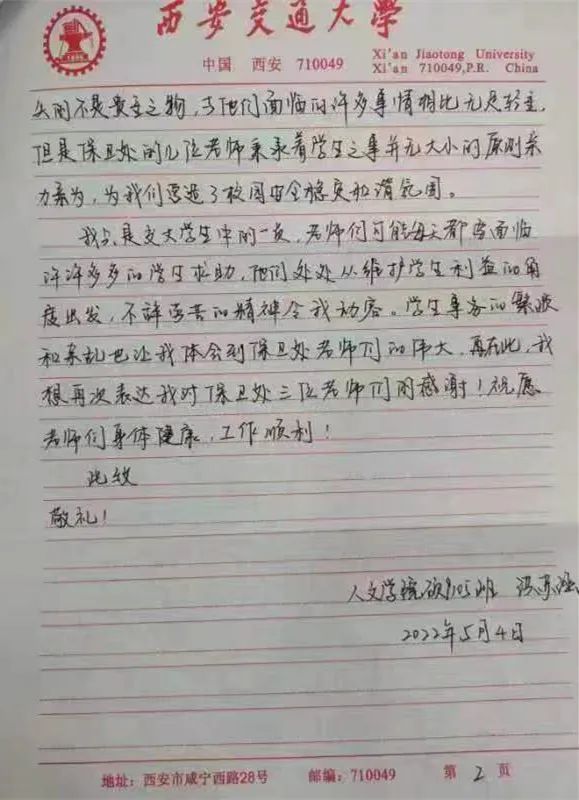 西安交通大学
中国 西安 710049
Xi'an Jiaotong University
Xi'an 710049,P.R. China
失的不是贵重之物,与他们面临的许多事情相比无足轻重,
但是保卫处的几位老师秉承着学生之事并无大小的原则亲
力亲为,为我们营造了校园安全稳定和谐氛围。
我只是交大学生中的一员,老师们可能每天都会面临
许许多多的学生求助,他们处处从维护学生利益的角
度出发,不辞辛苦的精神令我动容。学生事务的繁琐
和杂乱也让我体会到保卫处老师们的伟大,再在此,我
想再次表达我对保卫处三位老师们的感谢!祝愿
老师们身体健康,工作顺利!
此致
敬礼!
人文学院硕9105班
2022年5月4日
地址:西安市咸宁西路28号 邮编:710049 第 2 页